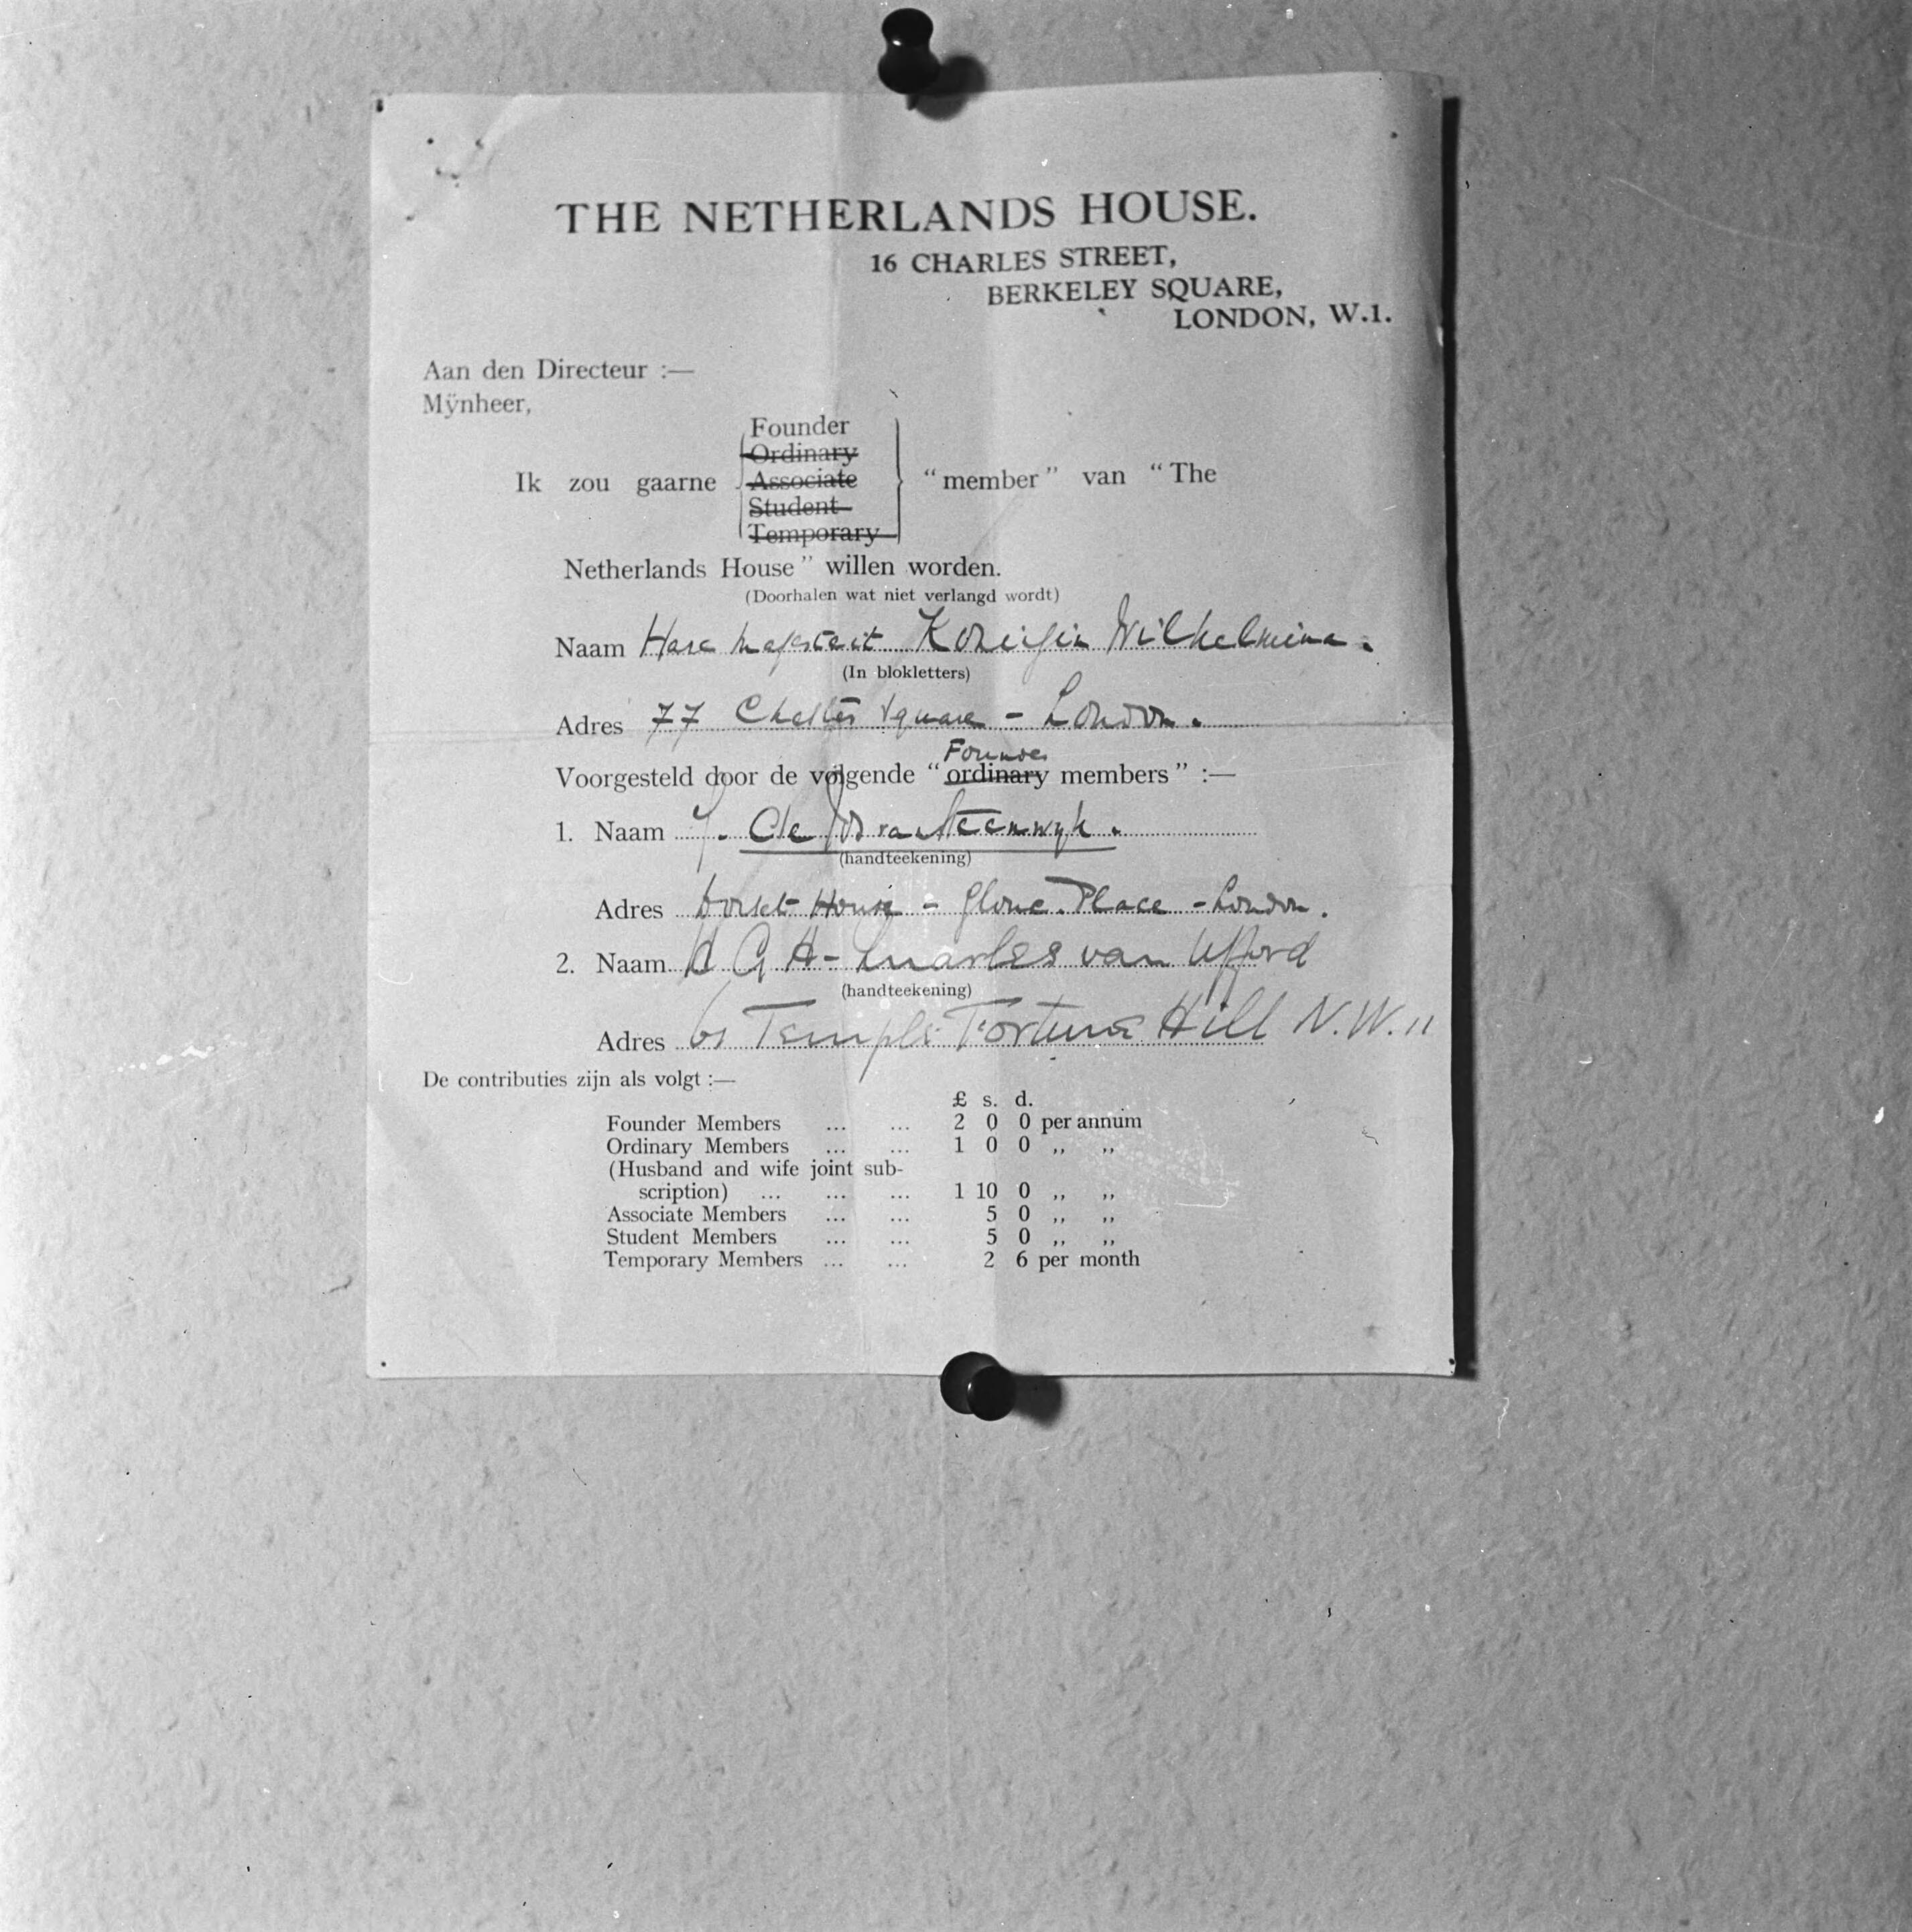 THE NETHERLANDS HOUSE.
16 CHARLES STREET,
BERKELEY SQUARE,
LONDON, W.1.
Aan den Directeur :—
Mÿnheer,
Founder
Ordinary
Associate
Ik zou gaarne "member" van "The
Student
Temporary
Netherlands House" willen worden.
(Doorhalen wat niet verlangd wordt)
Naam Hare Majesteit Koningin Wilhelmina.
(In blokletters)
Adres 77 Chester Square - London.
Founder
Voorgesteld door de volgende "ordinary members" :—
1. Naam de Vos van Steenwyk.
(handteekening)
Adres Dorset House - Glouc. Place - London.
2. Naam H G H - Quarles van Ufford
(handteekening)
Adres Temple Fortune Hill N.W. 11
De contributies zijn als volgt :—
£ s. d.
Founder Members ... ... 2 0 0 per annum
Ordinary Members ... ... 1 0 0 ,, ,,
(Husband and wife joint sub-
scription) ... ... ... 1 10 0 ,, ,,
Associate Members ... ... 5 0 ,, ,,
Student Members ... ... 5 0 ,, ,,
Temporary Members ... ... 2 6 per month